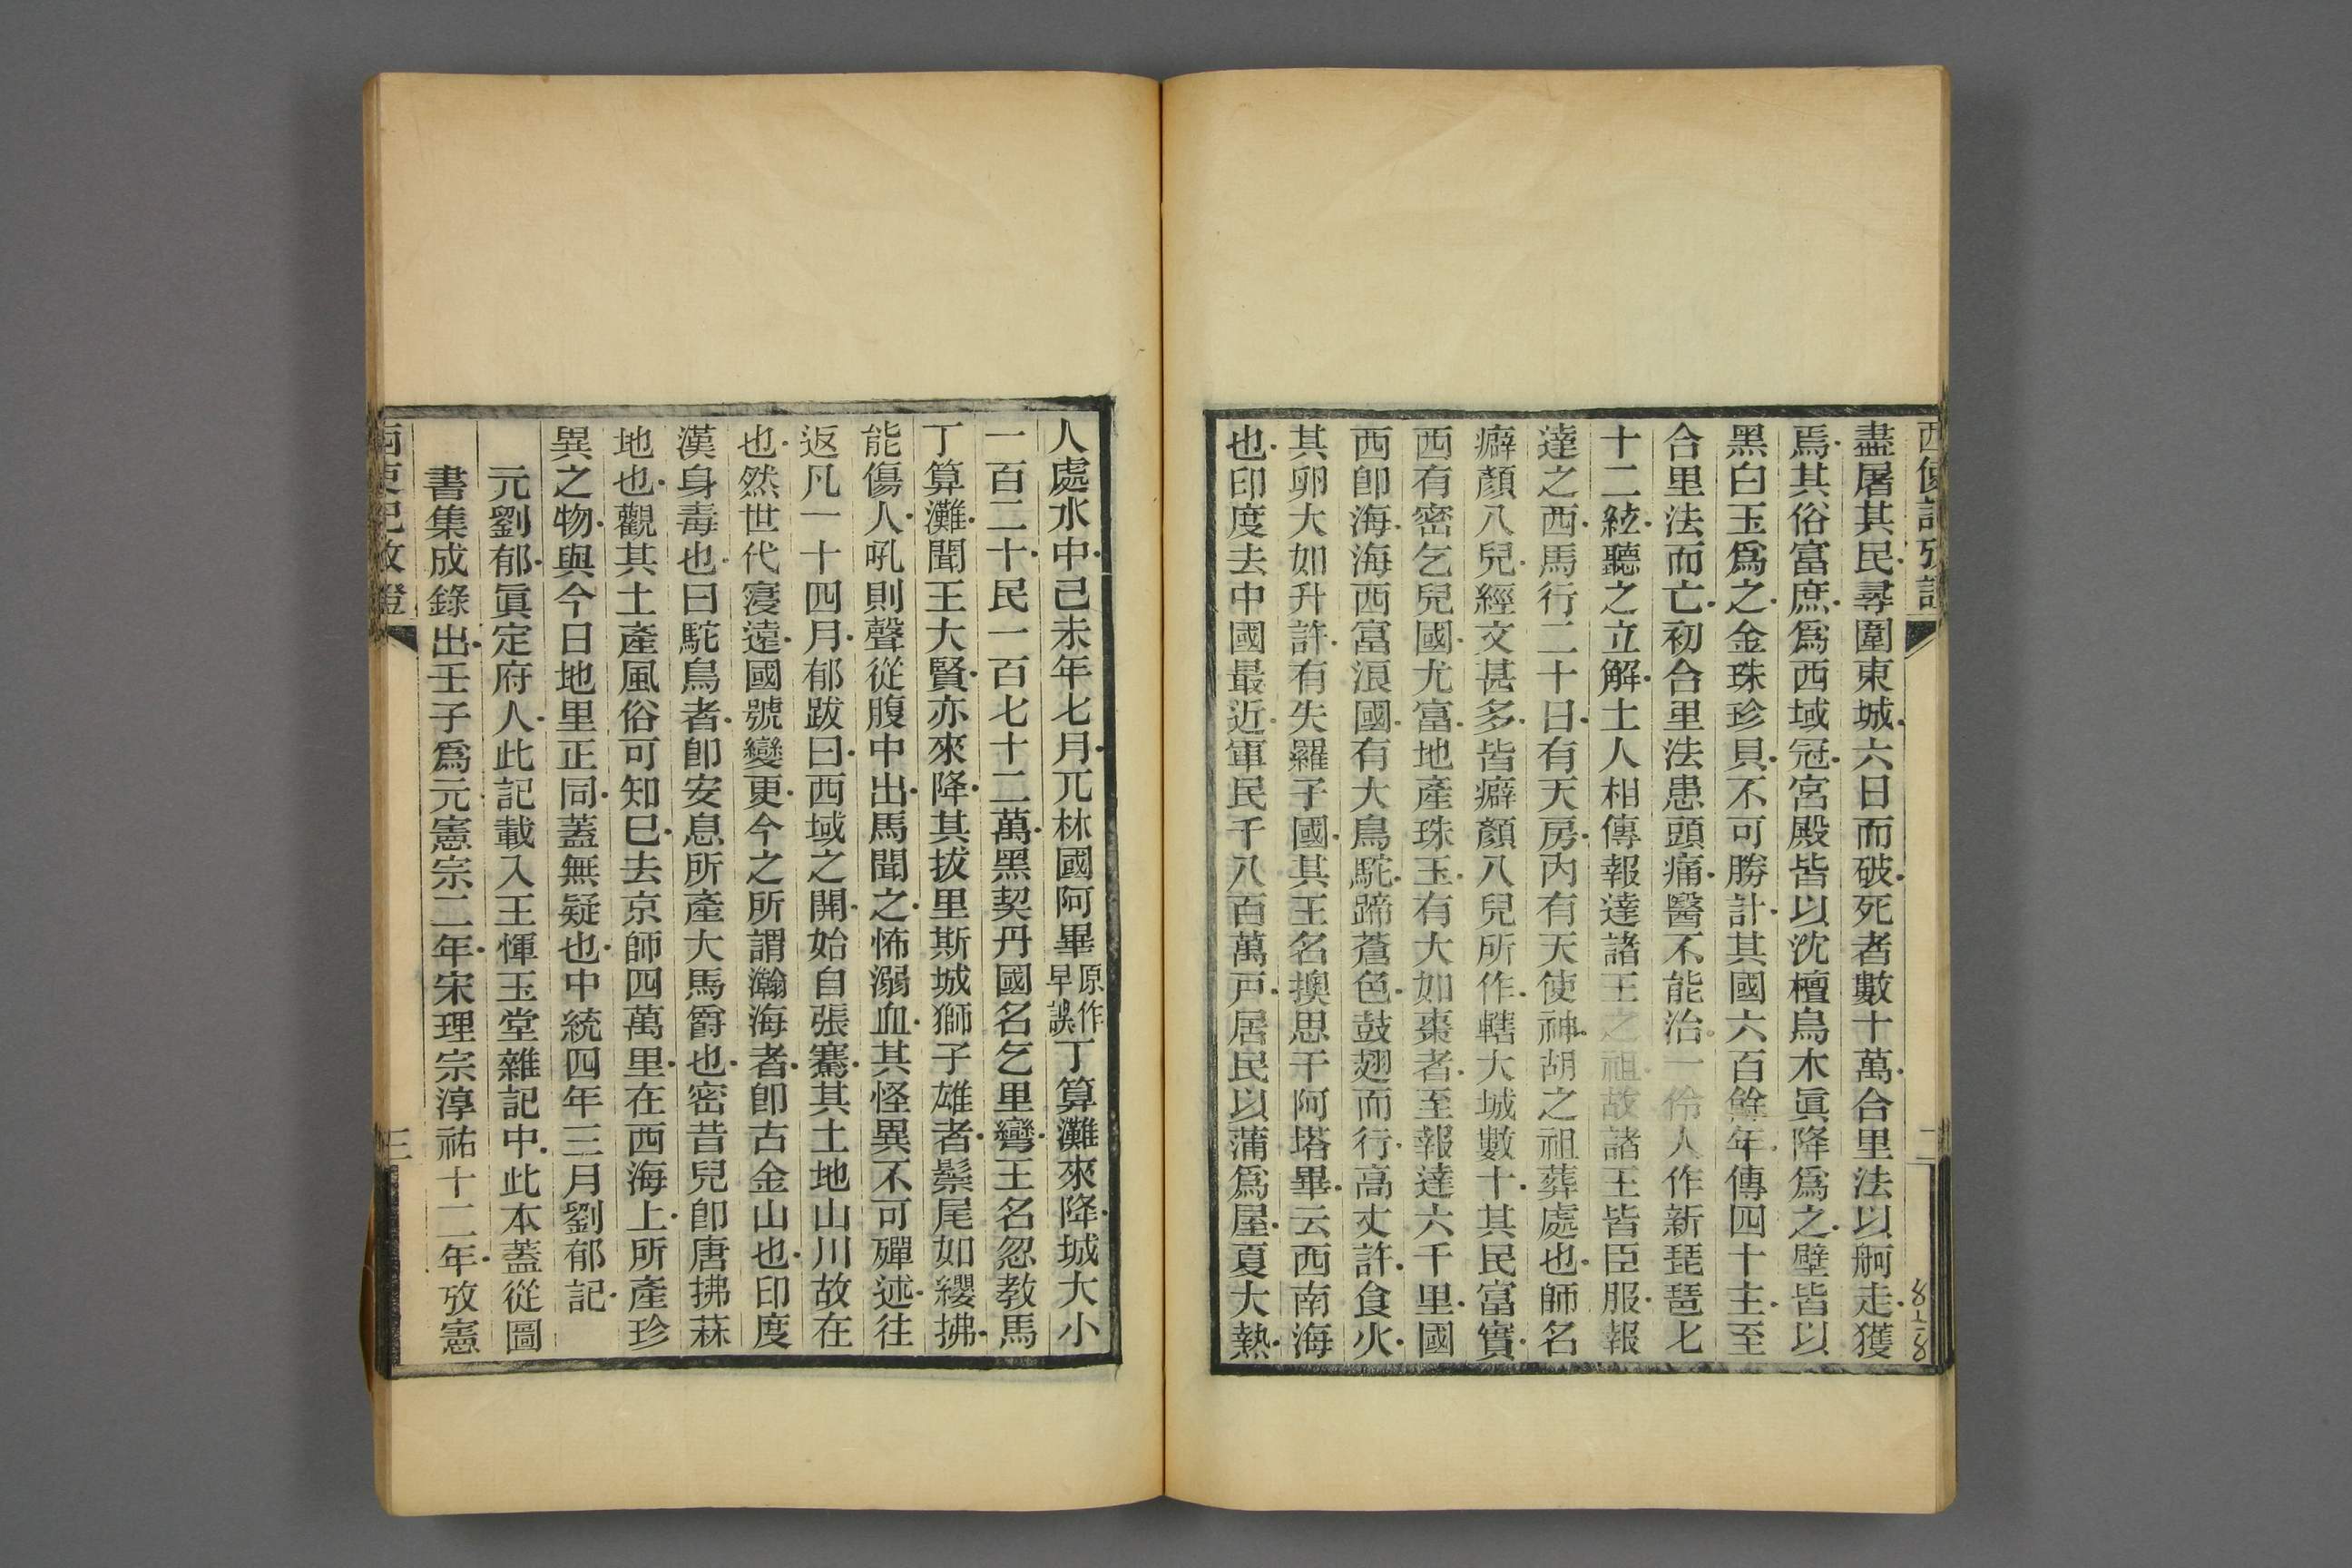 盡屠其民尋圍東城六日而破死者數十萬合里法以舸走獲
焉其俗富庶爲西域冠宮殿皆以沈檀烏木眞降爲之壁皆以
黑白玉爲之金珠珍貝不可勝計其國六百餘年傳四十主至
合里法而亡初合里法患頭痛醫不能治一伶人作新琵琶七
十二絃聽之立解土人相傳報達諸王之祖故諸王皆臣服報
達之西馬行二十日有天房內有天使神胡之祖葬處也師名
癖顏八兒經文甚多皆癖顏八兒所作轄大城數十其民富實
西有密乞兒國尤富地產珠玉有大如棗者至報達六千里國
西卽海海西富浪國有大鳥駝蹄蒼色鼓翅而行高丈許食火
其卵大如升許有失羅子國其王名換思干阿塔畢云西南海
也印度去中國最近軍民千八百萬戸居民以蒲爲屋夏大熱
二
人處水中己未年七月兀林國阿畢原作早誤丁算灘來降城大小
一百二十民一百七十二萬黑契丹國名乞里彎王名忽教馬
丁算灘聞王大賢亦來降其拔里斯城獅子雄者鬃尾如纓拂
能傷人吼則聲從腹中出馬聞之怖溺血其怪異不可殫述往
返凡一十四月郁跋曰西域之開始自張騫其土地山川故在
也然世代寖遠國號變更今之所謂瀚海者卽古金山也印度
漢身毒也曰駝鳥者卽安息所產大馬爵也密昔兒卽唐拂菻
地也觀其土產風俗可知巳去京師四萬里在西海上所產珍
異之物與今日地里正同蓋無疑也中統四年三月劉郁記
元劉郁眞定府人此記載入王惲玉堂雜記中此本蓋從圖
書集成錄出壬子爲元憲宗二年宋理宗淳祐十二年攷憲
三